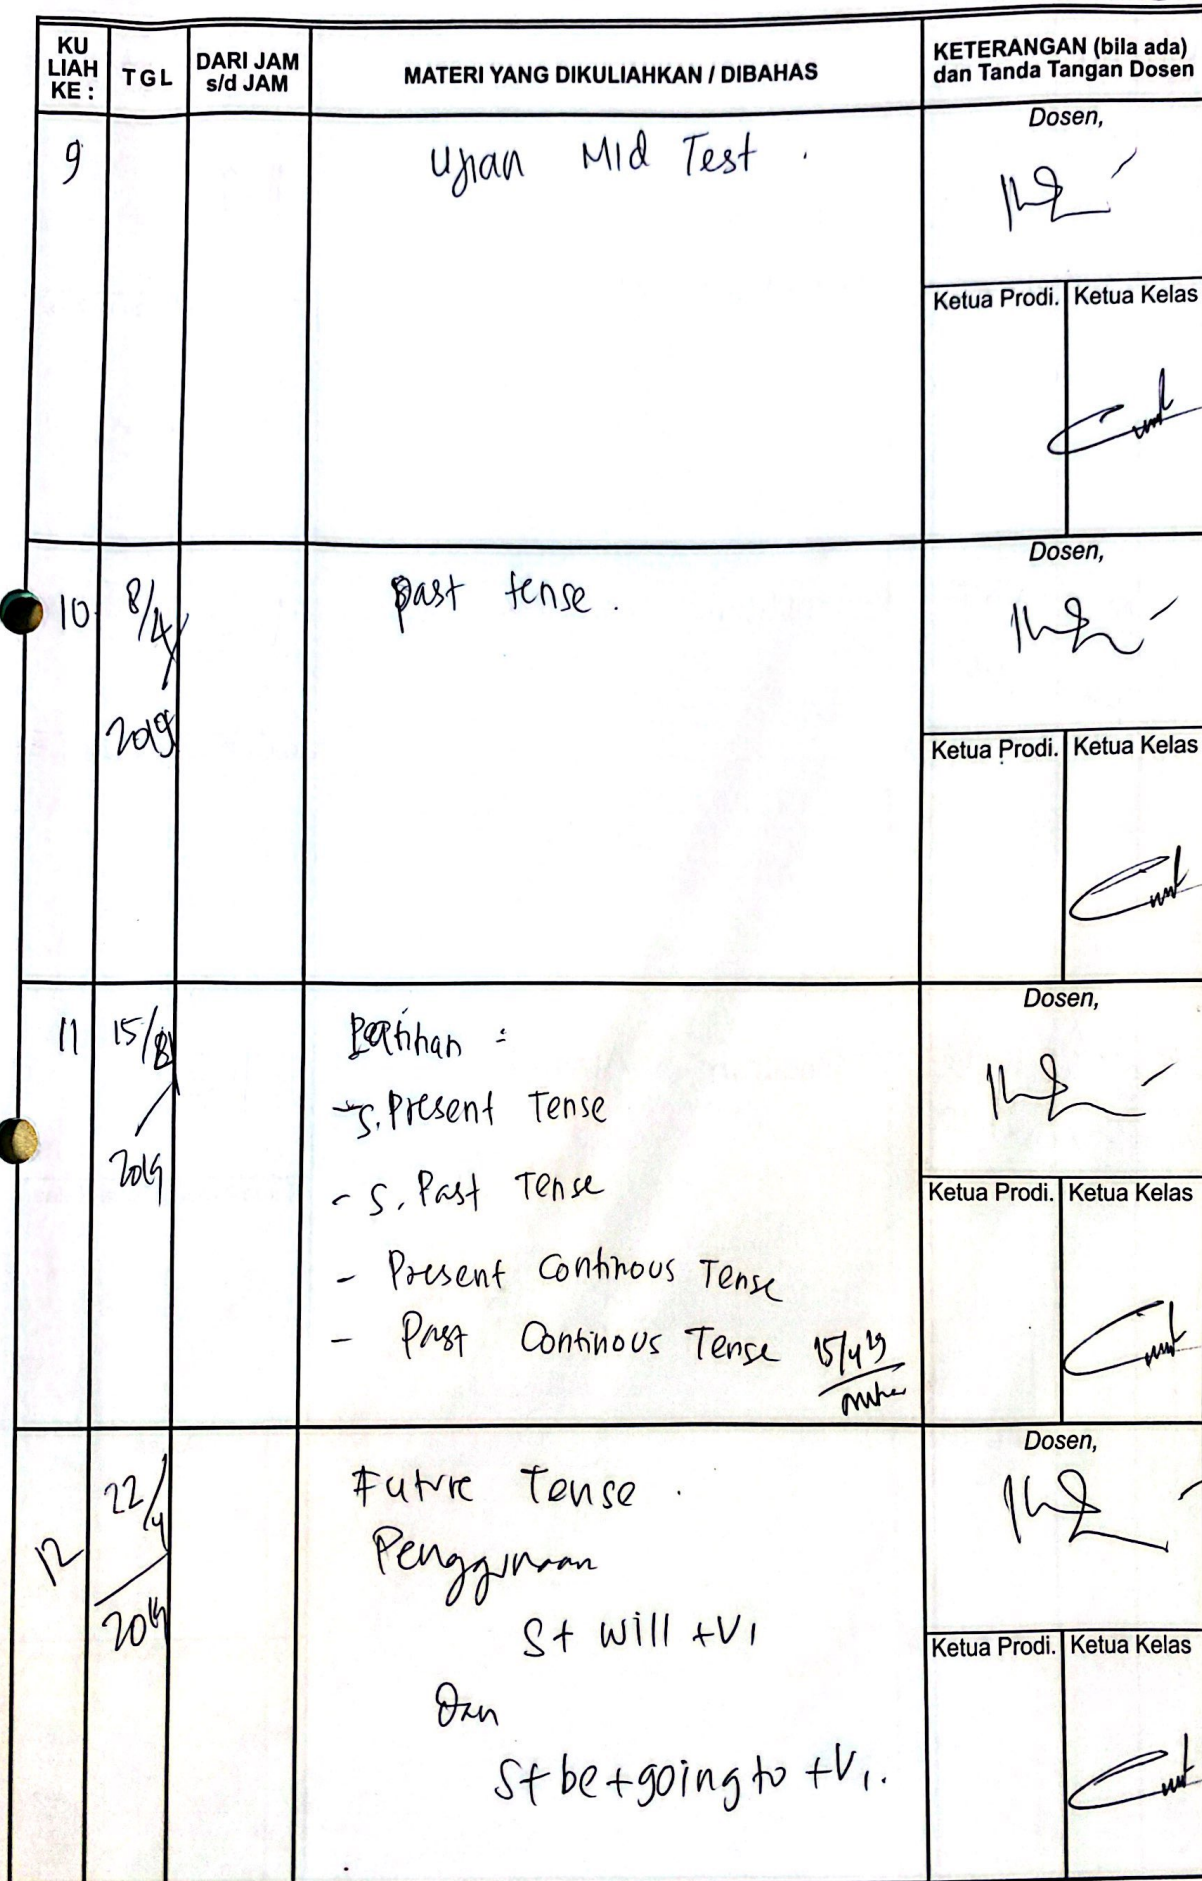 KU LIAH KE :
TGL
DARI JAM s/d JAM
MATERI YANG DIKULIAHKAN / DIBAHAS
KETERANGAN (bila ada) dan Tanda Tangan Dosen
9
Ujian Mid Test .
Dosen,
Ketua Prodi.
Ketua Kelas
10
8/4
2019
past tense .
Dosen,
Ketua Prodi.
Ketua Kelas
11
15/
2019
:
- S. Present Tense
- S. Past Tense
- Present Continous Tense
- Past Continous Tense
15/4 19
Dosen,
Ketua Prodi.
Ketua Kelas
12
22/4
2019
Future Tense .
Penggunaan
S + will + V1
Dan
S + be + going to + V1.
Dosen,
Ketua Prodi.
Ketua Kelas